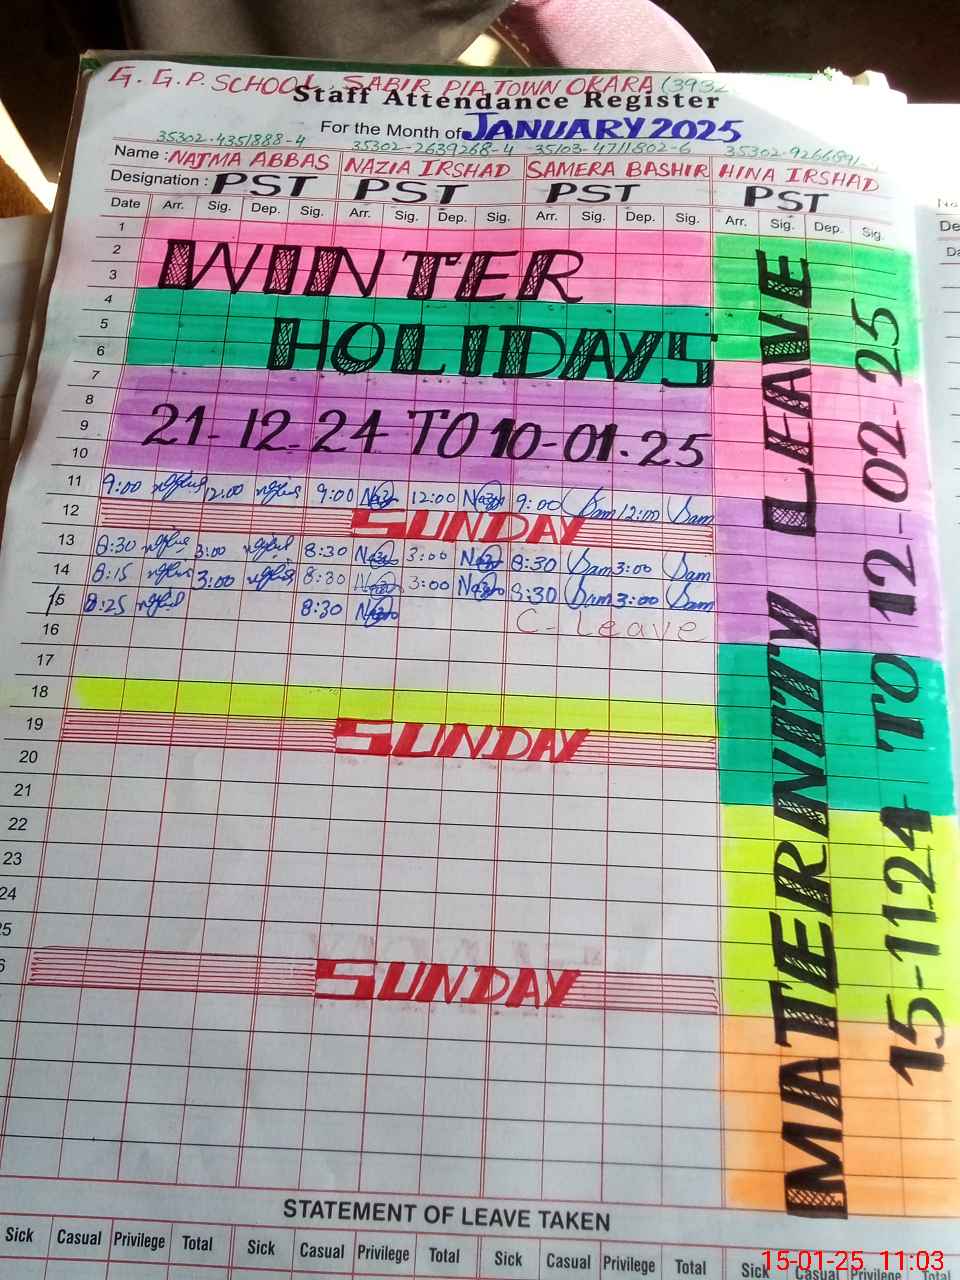 G. G.P. SCHOOL, SABIR PIA TOWN OKARA (3932
Staff Attendance Register
For the Month of JANUARY 2025
35302-4351888-4 35302-2639268-4 35103-4711802-6
Name : NAJMA ABBAS NAZIA IRSHAD SAMERA BASHIR HINA IRSHAD
Designation : PST PST PST PST
Date Arr. Sig. Dep. Sig. Arr. Sig. Dep. Sig. Arr. Sig. Dep. Sig. Arr. Sig. Dep. Sig.
1
2
3
WINTER
4
5
6
HOLIDAYS
7
8
9
10
21-12-24 TO 10-01-25
11 9:00 12:00 9:00 12:00 9:00 12:00
12 SUNDAY
13 8:30 3:00 8:30 3:00 8:30 3:00
14 8:15 3:00 8:30 3:00 8:30 3:00
15 8:25 8:30
16 C-Leave
17
18
19 SUNDAY
20
21
22
23
24
25
6 SUNDAY
MATERNITY LEAVE
15-1124 TO 12-02-25
STATEMENT OF LEAVE TAKEN
Sick Casual Privilege Total Sick Casual Privilege Total Sick Casual Privilege Total Sick Casual Privilege Total
15-01-25 11:03